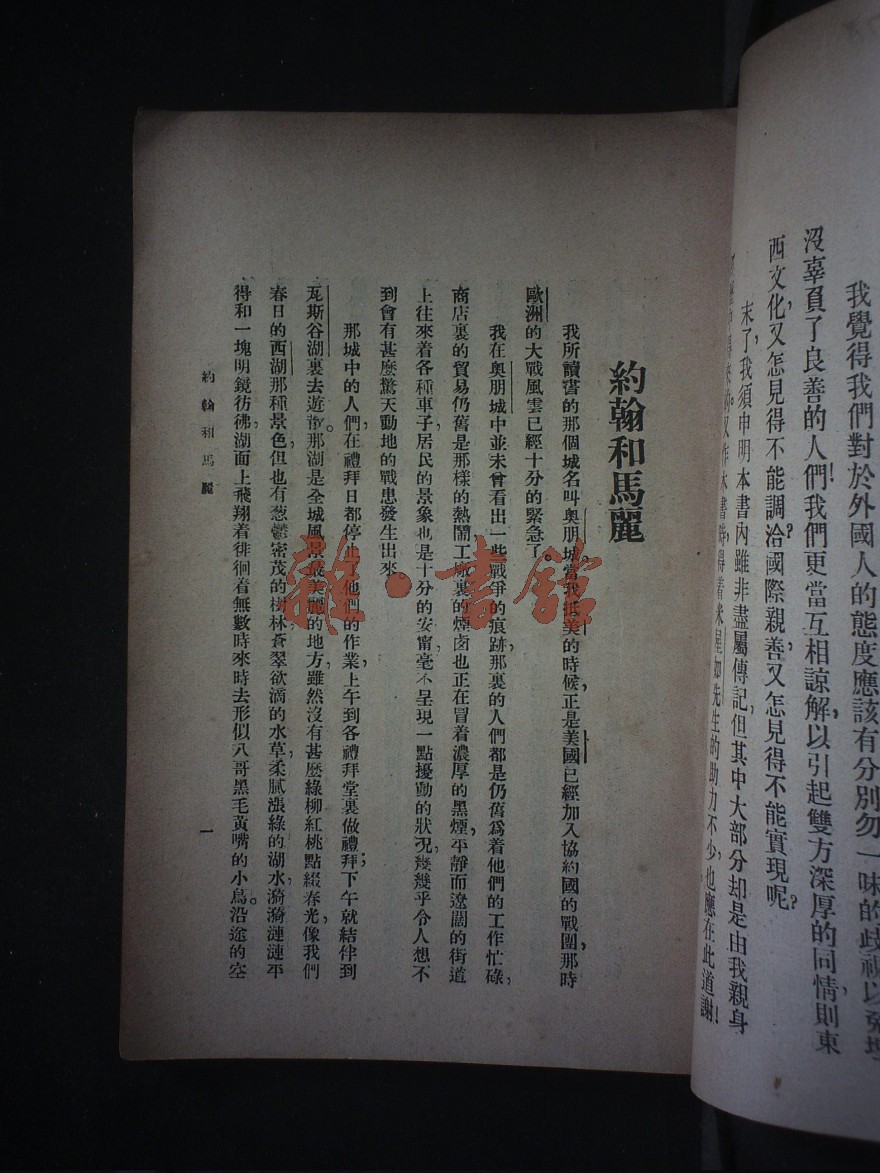 我覺得我們對於外國人的態度應該有分別勿一味的歧視以免埋
沒辜負了良善的人們!我們更當互相諒解,以引起雙方深厚的同情,則東
西文化,又怎見得不能調洽?國際親善,又怎見得不能實現呢?
末了,我須申明本書內雖非盡屬傳記,但其中大部分却是由我親身
先生的助力不少,也應在此道謝!
約翰和馬麗
我所讀書的那個城名叫奧朋城當我抵美的時候,正是美國已經加入協約國的戰團,那時
歐洲的大戰風雲已經十分的緊急了。
我在奧朋城中並未曾看出一些戰爭的痕跡,那裏的人們都是仍舊爲着他們的工作忙碌,
商店裏的貿易仍舊是那樣的熱鬧,工廠裏的煙囱也正在冒着濃厚的黑煙,平靜而遼闊的街道
上往來着各種車子,居民的景象也是十分的安甯,毫不呈現一點擾動的狀況,幾幾乎令人想不
到會有甚麼驚天動地的戰患發生出來。
那城中的人們,在禮拜日都停止了他們的作業,上午到各禮拜堂裏做禮拜;下午就結伴到
瓦斯谷湖裏去遊散。那湖是全城風景最美麗的地方,雖然沒有甚麼綠柳紅桃點綴春光,像我們
春日的西湖那種景色,但也有葱鬱密茂的樹林,蒼翠欲滴的水草,柔膩漲綠的湖水,漪漪漣漣,平
得和一塊明鏡彷彿,湖面上飛翔着徘徊着無數時來時去形似八哥黑毛黃嘴的小鳥。沿途的空
約翰和馬麗
一
雜·書館